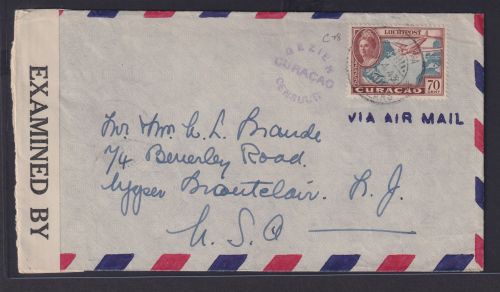 C78
GEZIEN
CURAÇAO
CENSUUR
LUCHTPOST
CURAÇAO
70
VIA AIR MAIL
EXAMINED BY
Mr. Wm. C. L. Brande
74 Beverley Road.
Upper Montclair. N. J.
U. S. A